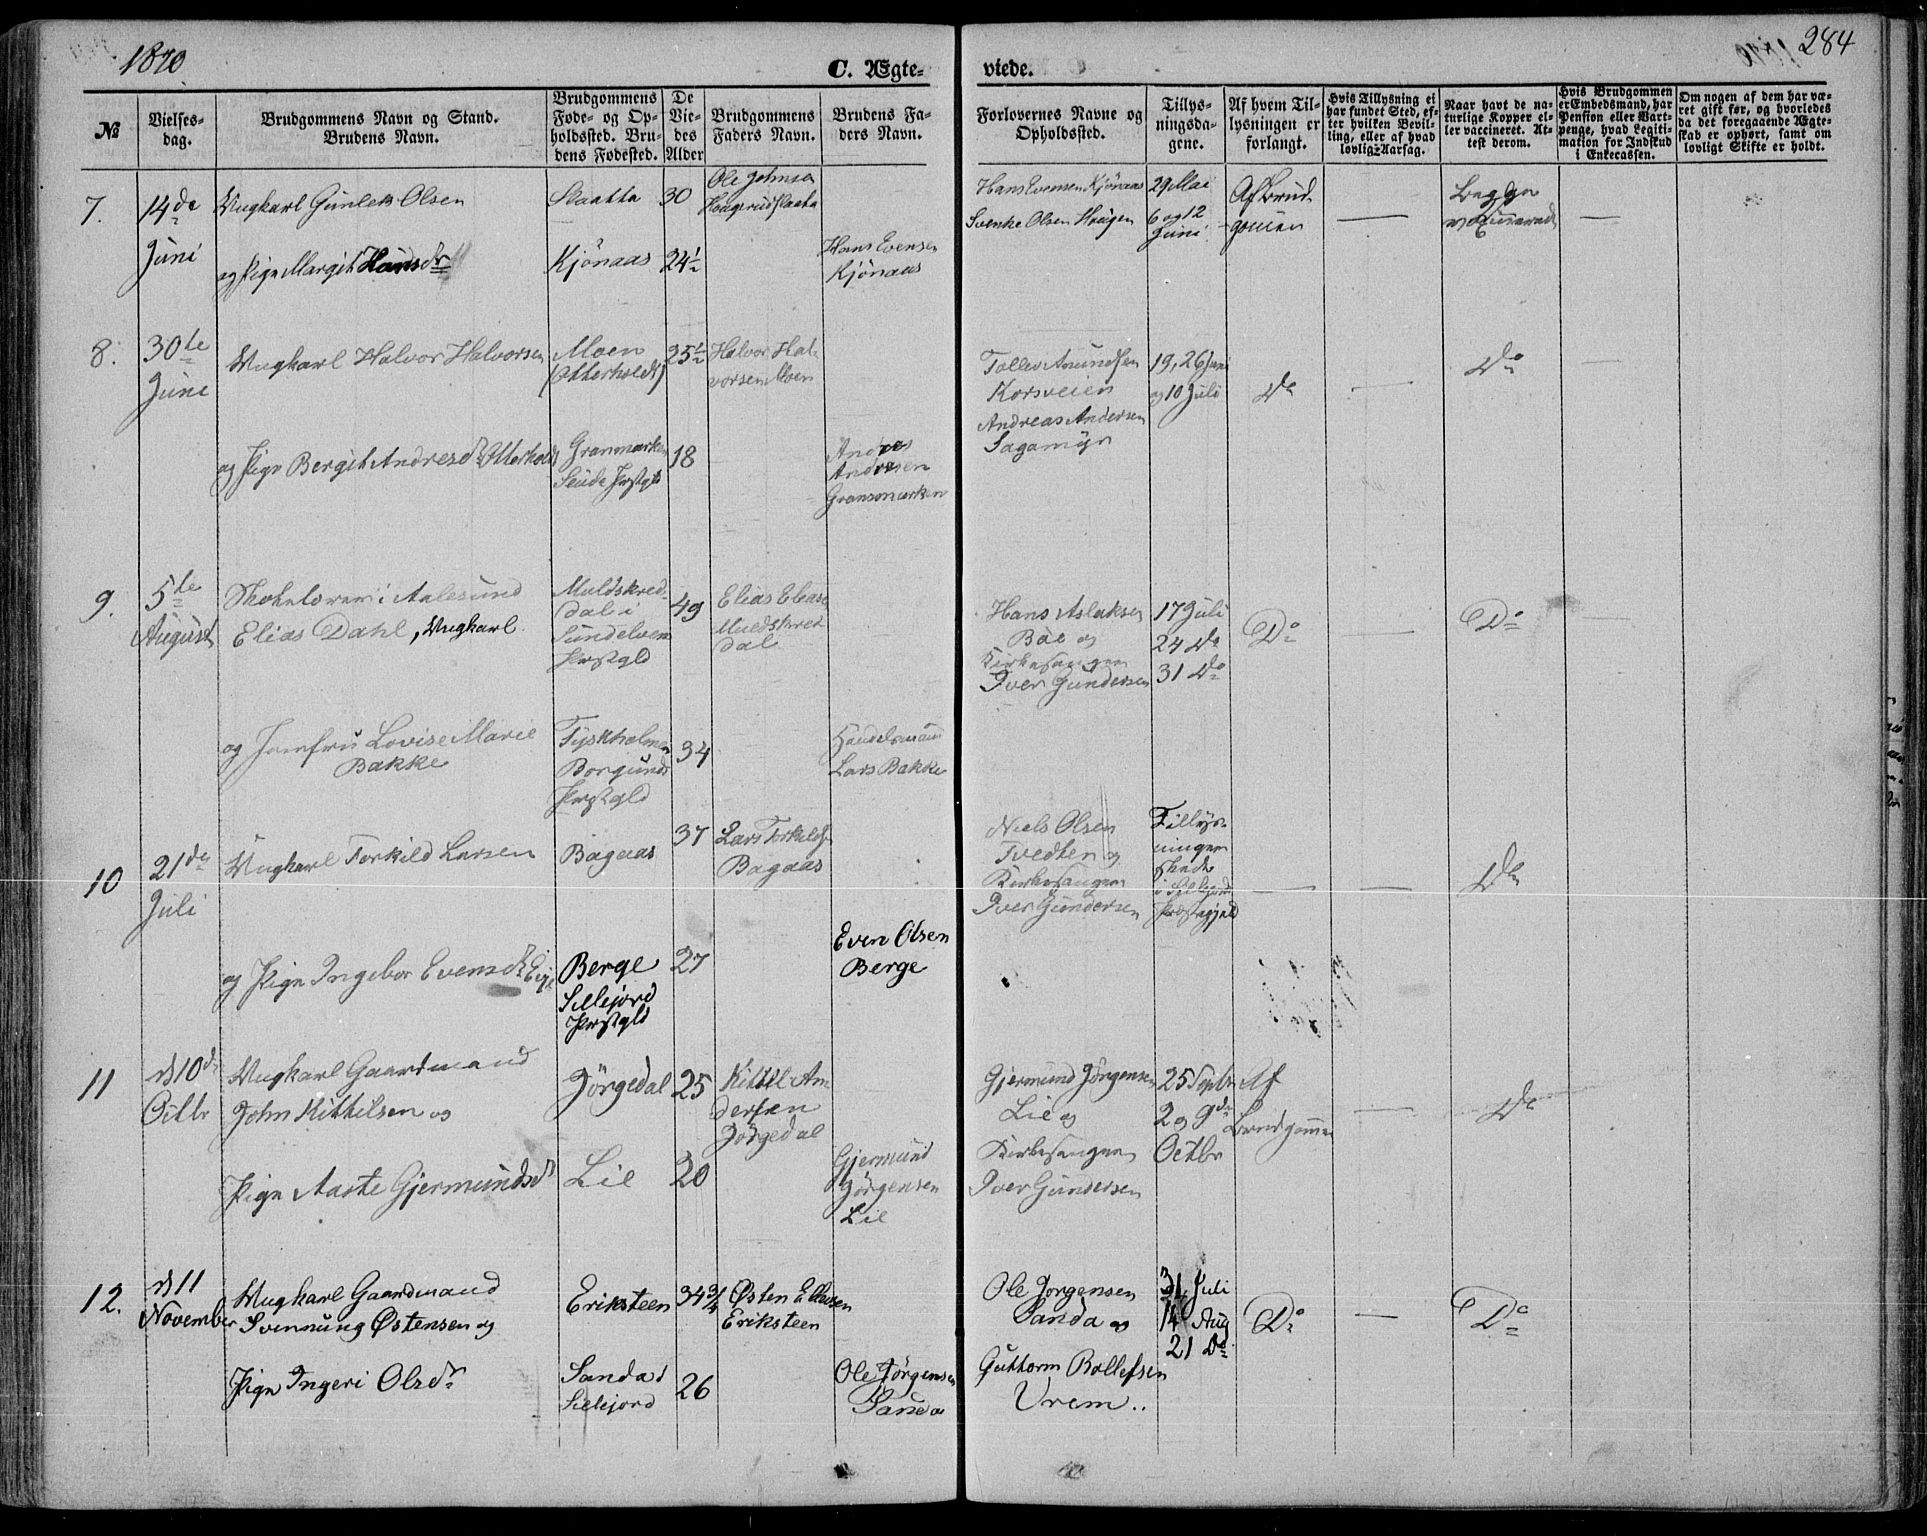 1870
284
C. Ægte-
viede.
№
Vielses-
dag.
Brudgommens Navn og Stand.
Brudens Navn.
Brudgommens
Føde- og Op-
holdssted. Bru-
dens Fødested.
De
Vie-
des
Alder
Brudgommens
Faders Navn.
Brudens Fa-
ders Navn.
Forlovernes Navne og
Opholdssted.
Tillys-
ningsda-
gene.
Af hvem Til-
lysningen er
forlangt.
Hvis Tillysning ei
har fundet Sted, ef-
ter hvilken Bevil-
ling, eller af hvad
lovlig Aarsag.
Naar havt de na-
turlige Kopper el-
ler vaccineret. At-
test derom.
Hvis Brudgommen
er Embedsmand, har
Pension eller Vart-
penge, hvad Legiti-
mation for Indskud
i Enkecassen.
Om nogen af dem har væ-
ret gift før, og hvorledes
da det foregaaende Ægte-
skab er ophørt, samt om
lovligt Skifte er holdt.
7.
14de
Juni
Ungkarl Gunlek Olsen
og Pige Margit Hansdr
Slaatta
Kjönaas
30
24½
Ole Johnsen
Haugerud Slaatta
Hans Evensen
Kjönaas
Hans Evensen Kjönaas
Svenke Olsen Haugen
29 Mai
6 og 12
Juni
Af Brud-
gomen
Begge
8.
30te
Juni
Ungkarl Halvor Halvorsen
og Pige Bergit Andresdr Otterholdt
Moen
(Otterholdt)
Granmarken
Seude Prstgld
25½
18
Halvor Hal-
vorsen Moen
Andres
Andresen
Gransmarken
Tollev Amundsen
Korsveien
Andreas Andersen
Sagamyr
19, 26 Juni
og 10 Juli
Do
Do
9.
5te
August
i Aalesund
Elias Dahl, Ungkarl
og Jomfru Lovise Marie
Bakke
Muldskred-
dal i
Sundelven
Prstgld
Tyskholmen
Borgund
Prstgld
49
34
Elias Eliase
Muldskred
dal
Handelsmand
Lars Bakke
Hans Aslaksen
Bøe og
Kirkesanger
Iver Gundersen
17 Juli
24 Do
31 Do
Do
Do
10
21de
Juli
Ungkarl Torkild Larsen
og Pige Ingebor Evensdr Eige
Bagaas
Berge
Sillejord
Prstgld
37
27
Lars Torkilds
Bagaas
Even Olsen
Berge
Niels Olsen
Tvedten og
Kirkesanger
Iver Gundersen
Tillys-
ningen
skede
i Sillejord
Præstegjeld
Do
11
d 10de
Octbr
Ungkarl Gaardmand
John Kittilsen og
Pige Aaste Gjermundsdr
Jörgedal
Lie
25
20
Kittil An
dersen
Jörgedal
Gjermund
Jörgensen
Lie
Gjermund Jörgensen
Lie og
Kirkesanger
Iver Gundersen
25 Septbr
2 og 9de
Octbr
Af
Brudgommen
Do
12.
d 11
November
Ungkarl Gaardmand
Svennung Østensen og
Pige Ingeri Olsdr
Eriksteen
Sanda i
Sillejord
34¾
26
Østen Ellevsen
Eriksteen
Ole Jörgensen
Sanda
Ole Jorgensen
Sanda og
Guttorm Rollefsen
Vrem..
31 Juli
14 Aug
21 Do
Do
Do